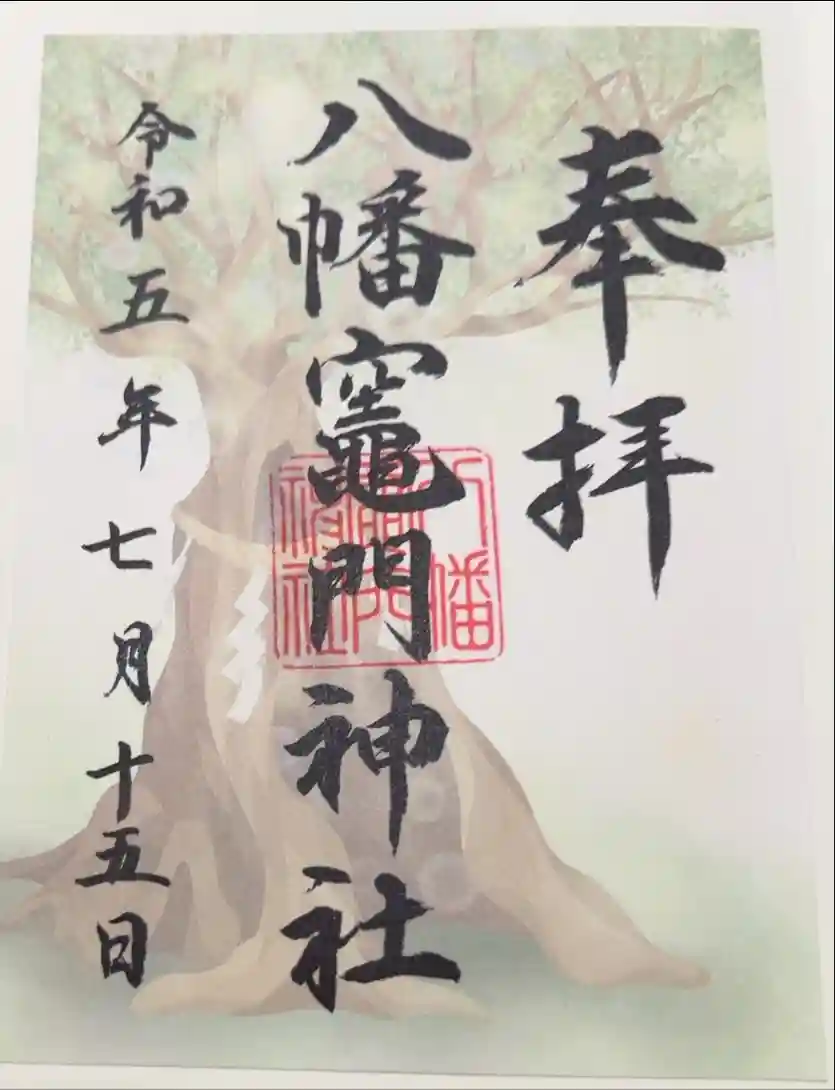 奉拝
八幡竈門神社
令和五年七月十五日
八幡竈門神社